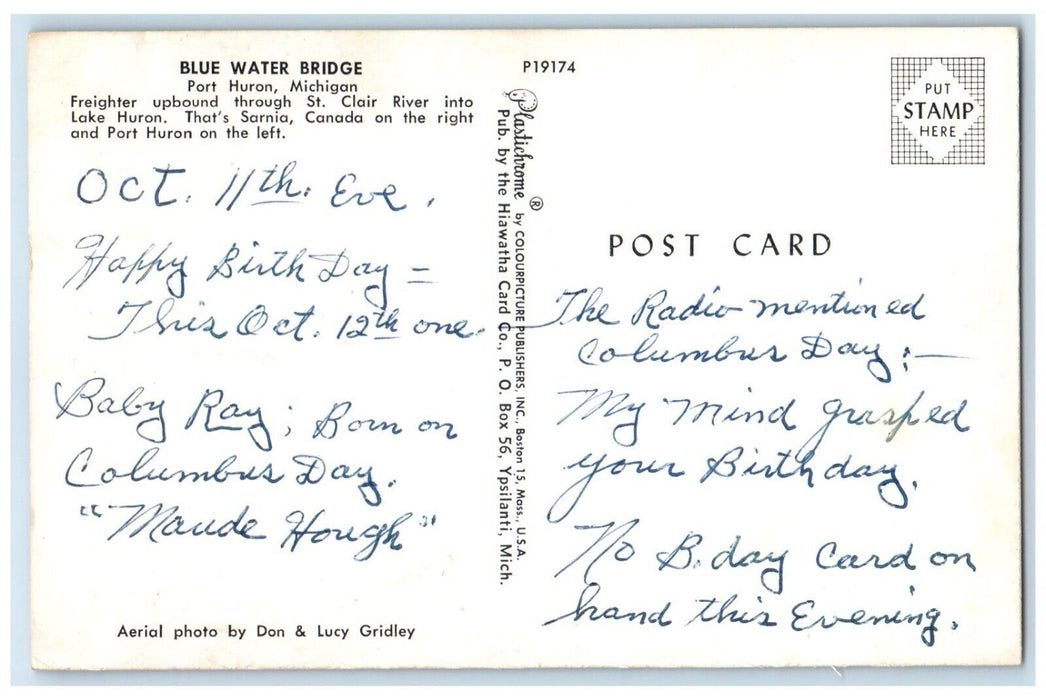 BLUE WATER BRIDGE
Port Huron, Michigan
Freighter upbound through St. Clair River into
Lake Huron. That's Sarnia, Canada on the right
and Port Huron on the left.
Oct. 11th. Eve.
Happy Birth Day =
This Oct. 12th one.
Baby Ray; Born on
Columbus Day.
"Maude Hough"
Aerial photo by Don & Lucy Gridley
P19174
Plastichrome ® by COLOURPICTURE PUBLISHERS, INC., Boston 15, Mass., U.S.A.
Pub. by the Hiawatha Card Co., P. O. Box 56, Ypsilanti, Mich.
PUT
STAMP
HERE
POST CARD
The Radio mentioned
Columbus Day;—
My mind grasped
your Birthday.
No B.day Card on
hand this Evening.